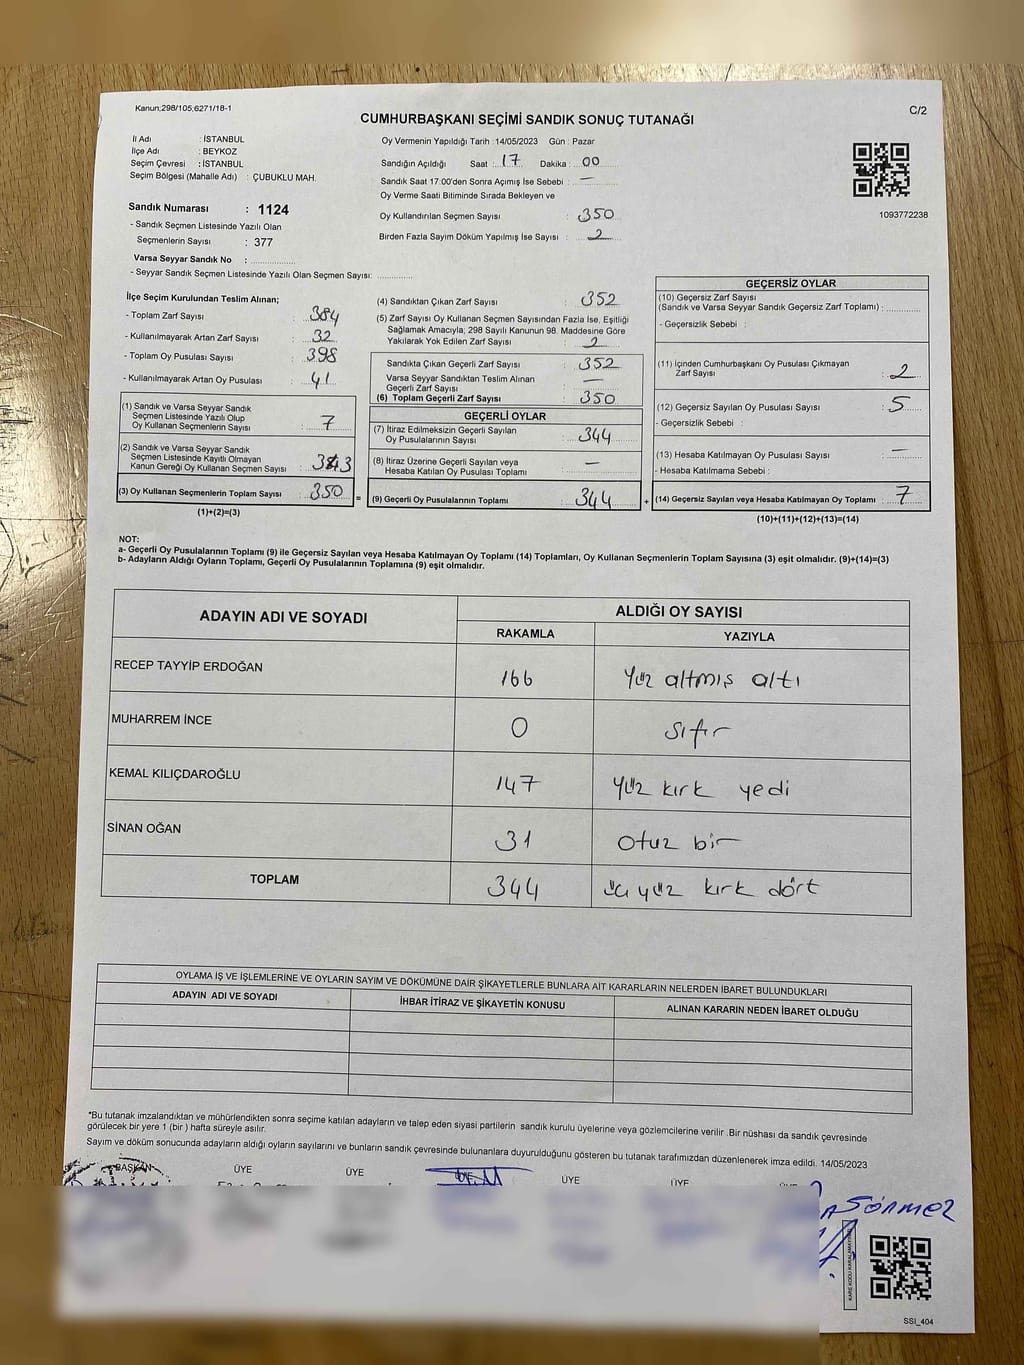 Kanun;298/105;6271/18-1
CUMHURBAŞKANI SEÇİMİ SANDIK SONUÇ TUTANAĞI
C/2
İl Adı : İSTANBUL
İlçe Adı : BEYKOZ
Seçim Çevresi : İSTANBUL
Seçim Bölgesi (Mahalle Adı) : ÇUBUKLU MAH.
Sandık Numarası : 1124
- Sandık Seçmen Listesinde Yazılı Olan
Seçmenlerin Sayısı : 377
Varsa Seyyar Sandık No : ..............
- Seyyar Sandık Seçmen Listesinde Yazılı Olan Seçmen Sayısı: ............
Oy Vermenin Yapıldığı Tarih : 14/05/2023 Gün : Pazar
Sandığın Açıldığı Saat : 17 Dakika : 00
Sandık Saat 17:00'den Sonra Açımış İse Sebebi : —
Oy Verme Saati Bitiminde Sırada Bekleyen ve
Oy Kullandırılan Seçmen Sayısı : 350
Birden Fazla Sayım Döküm Yapılmış İse Sayısı : 2
1093772238
İlçe Seçim Kurulundan Teslim Alınan;
- Toplam Zarf Sayısı : 384
- Kullanılmayarak Artan Zarf Sayısı : 32
- Toplam Oy Pusulası Sayısı : 398
- Kullanılmayarak Artan Oy Pusulası : 41
(1) Sandık ve Varsa Seyyar Sandık
Seçmen Listesinde Yazılı Olup
Oy Kullanan Seçmenlerin Sayısı : 7
(2) Sandık ve Varsa Seyyar Sandık
Seçmen Listesinde Kayıtlı Olmayan
Kanun Gereği Oy Kullanan Seçmen Sayısı : 343
(3) Oy Kullanan Seçmenlerin Toplam Sayısı : 350
(1)+(2)=(3)
(4) Sandıktan Çıkan Zarf Sayısı : 352
(5) Zarf Sayısı Oy Kullanan Seçmen Sayısından Fazla İse, Eşitliği
Sağlamak Amacıyla; 298 Sayılı Kanunun 98. Maddesine Göre
Yakılarak Yok Edilen Zarf Sayısı : 2
Sandıkta Çıkan Geçerli Zarf Sayısı : 352
Varsa Seyyar Sandıktan Teslim Alınan
Geçerli Zarf Sayısı : —
(6) Toplam Geçerli Zarf Sayısı : 350
GEÇERLİ OYLAR
(7) İtiraz Edilmeksizin Geçerli Sayılan
Oy Pusulalarının Sayısı : 344
(8) İtiraz Üzerine Geçerli Sayılan veya
Hesaba Katılan Oy Pusulası Toplamı : —
= (9) Geçerli Oy Pusulalarının Toplamı : 344 +
GEÇERSİZ OYLAR
(10) Geçersiz Zarf Sayısı
(Sandık ve Varsa Seyyar Sandık Geçersiz Zarf Toplamı) : ............
- Geçersizlik Sebebi :
(11) İçinden Cumhurbaşkanı Oy Pusulası Çıkmayan
Zarf Sayısı : 2
(12) Geçersiz Sayılan Oy Pusulası Sayısı : 5
- Geçersizlik Sebebi :
(13) Hesaba Katılmayan Oy Pusulası Sayısı : —
- Hesaba Katılmama Sebebi :
(14) Geçersiz Sayılan veya Hesaba Katılmayan Oy Toplamı : 7
(10)+(11)+(12)+(13)=(14)
NOT:
a- Geçerli Oy Pusulalarının Toplamı (9) ile Geçersiz Sayılan veya Hesaba Katılmayan Oy Toplamı (14) Toplamları, Oy Kullanan Seçmenlerin Toplam Sayısına (3) eşit olmalıdır. (9)+(14)=(3)
b- Adayların Aldığı Oyların Toplamı, Geçerli Oy Pusulalarının Toplamına (9) eşit olmalıdır.
ADAYIN ADI VE SOYADI
ALDIĞI OY SAYISI
RAKAMLA YAZIYLA
RECEP TAYYİP ERDOĞAN 166 Yüz altmış altı
MUHARREM İNCE 0 sıfır
KEMAL KILIÇDAROĞLU 147 Yüz kırk yedi
SİNAN OĞAN 31 Otuz bir
TOPLAM 344 üç yüz kırk dört
OYLAMA İŞ VE İŞLEMLERİNE VE OYLARIN SAYIM VE DÖKÜMÜNE DAİR ŞİKAYETLERLE BUNLARA AİT KARARLARIN NELERDEN İBARET BULUNDUKLARI
ADAYIN ADI VE SOYADI İHBAR İTİRAZ VE ŞİKAYETİN KONUSU ALINAN KARARIN NEDEN İBARET OLDUĞU
*Bu tutanak imzalandıktan ve mühürlendikten sonra seçime katılan adayların ve talep eden siyasi partilerin sandık kurulu üyelerine veya gözlemcilerine verilir .Bir nüshası da sandık çevresinde
görülecek bir yere 1 (bir ) hafta süreyle asılır.
Sayım ve döküm sonucunda adayların aldığı oyların sayılarını ve bunların sandık çevresinde bulunanlara duyurulduğunu gösteren bu tutanak tarafımızdan düzenlenerek imza edildi. 14/05/2023
BAŞKAN ÜYE ÜYE ÜYE ÜYE ÜYE ÜYE
Sönmez
SSI_404